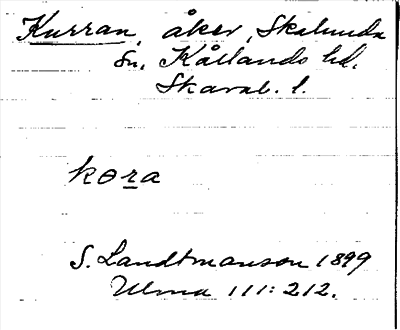 Kurran, åker, Skalunda
sn, Kållands hd.
Skarab. l.
kɵra
S. Landtmanson 1899
Ulma 111:212.